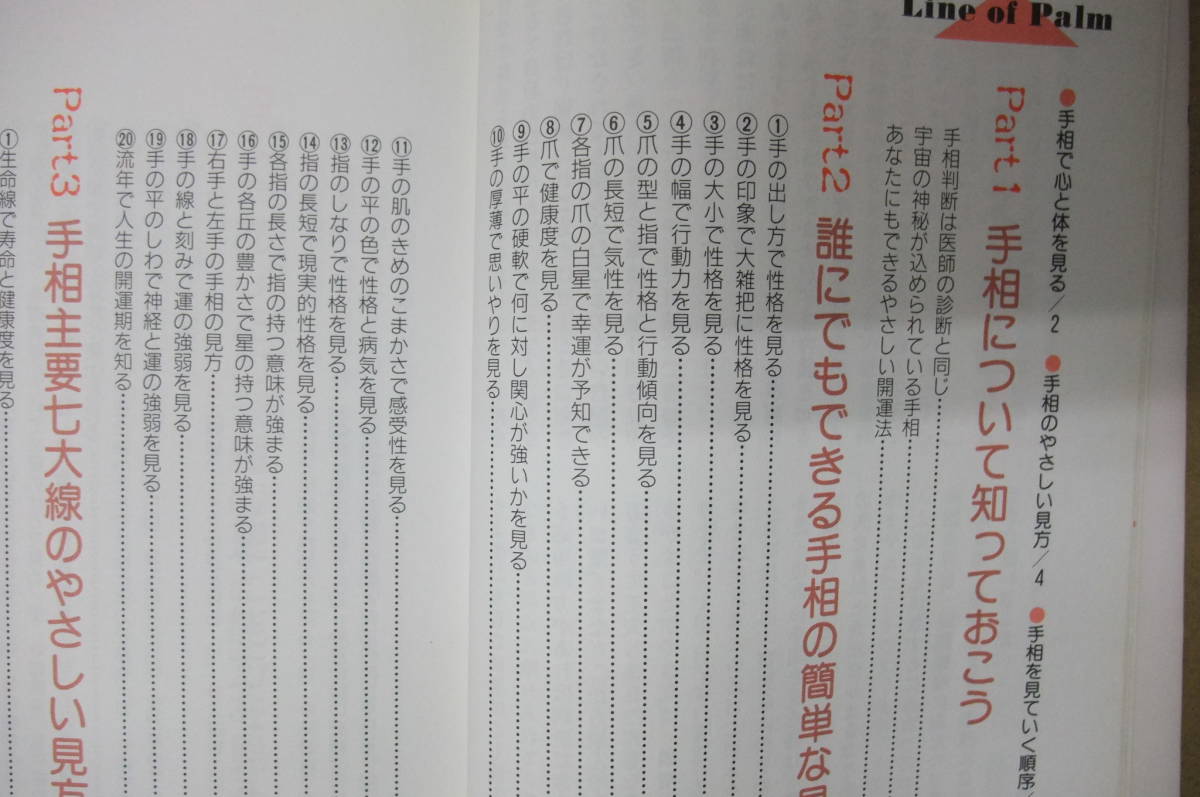 Line of Palm
●手相で心と体を見る／2 ●手相のやさしい見方／4 ●手相を見ていく順序／
Part 1 手相について知っておこう
手相判断は医師の診断と同じ…………
宇宙の神秘が込められている手相…………
あなたにもできるやさしい開運法…………
Part2 誰にでもできる手相の簡単な
①手の出し方で性格を見る…………
②手の印象で大雑把に性格を見る…………
③手の大小で性格を見る…………
④手の幅で行動力を見る…………
⑤爪の型と指で性格と行動傾向を見る…………
⑥爪の長短で気性を見る…………
⑦各指の爪の白星で幸運が予知できる…………
⑧爪で健康度を見る…………
⑨手の平の硬軟で何に対し関心が強いかを見る…………
⑩手の厚薄で思いやりを見る…………
⑪手の肌のきめのこまかさで感受性を見る…………
⑫手の平の色で性格と病気を見る…………
⑬指のしなりで性格を見る…………
⑭指の長短で現実的性格を見る…………
⑮各指の長さで指の持つ意味が強まる…………
⑯手の各丘の豊かさで星の持つ意味が強まる…………
⑰右手と左手の手相の見方…………
⑱手の線と刻みで運の強弱を見る…………
⑲手の平のしわで神経と運の強弱を見る…………
⑳流年で人生の開運期を知る…………
Part3 手相主要七大線のやさしい見方
①生命線で寿命と健康度を見る…………